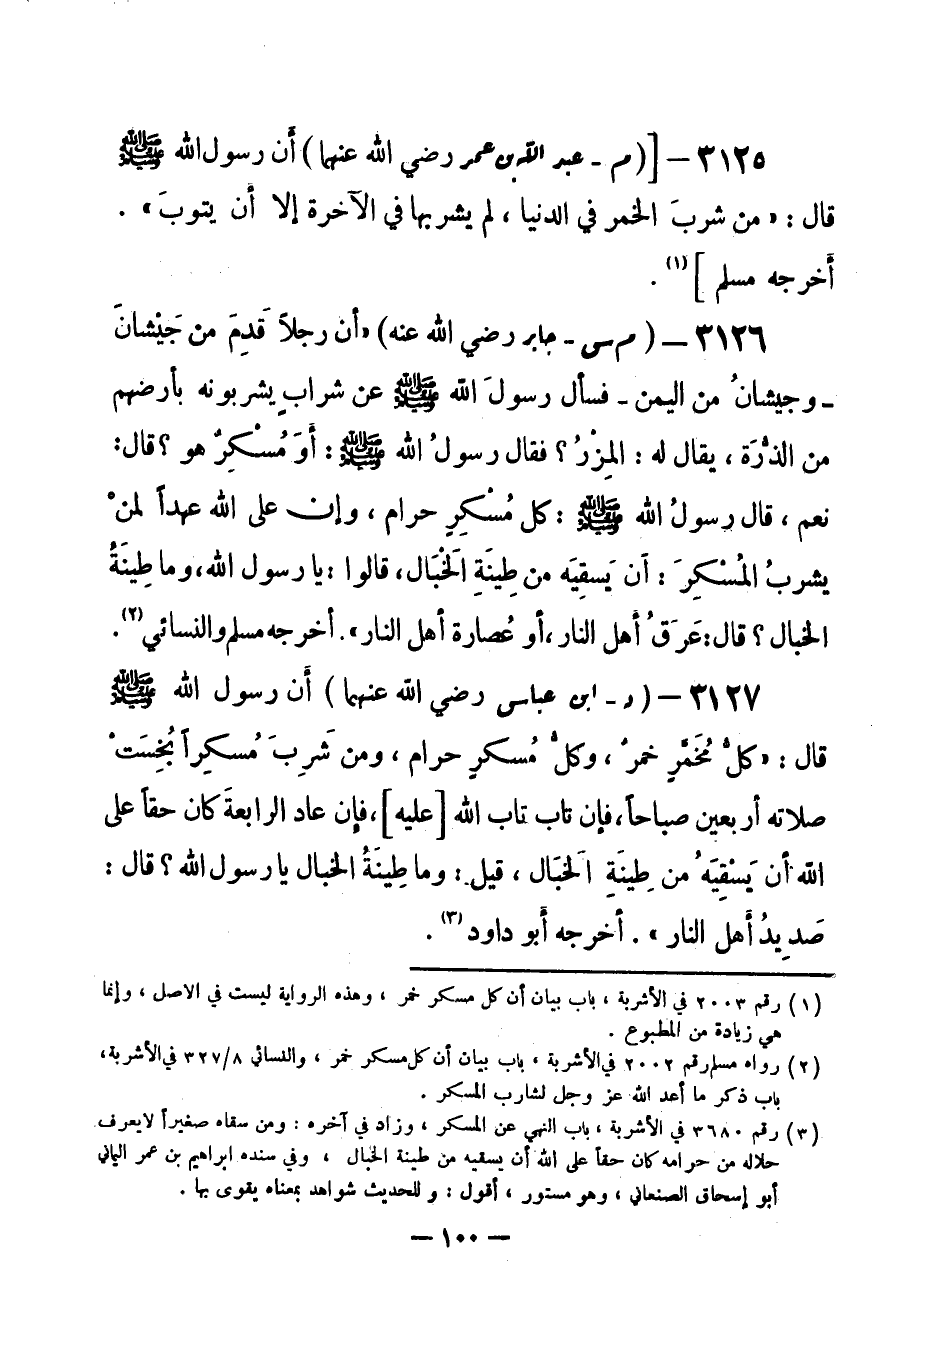 ٣١٢٥ – [ ( م - عبد الله بن عمر رضي الله عنهما ) أن رسول الله ﷺ
قال : « من شربَ الخمر في الدنيا ، لم يشربها في الآخرة إلا أن يتوبَ » .
أخرجه مسلم ] (١) .
٣١٢٦ – ( م س - جابر رضي الله عنه ) « أن رجلاً قَدِمَ من جَيْشانَ
- وجيشانُ من اليمن - فسأل رسولَ الله ﷺ عن شرابٍ يشربونه بأرضهم
من الذُّرَة ، يقال له : المِزْرُ ؟ فقال رسولُ الله ﷺ : أَوَ مُسْكِرٌ هو ؟ قال :
نعم ، قال رسولُ الله ﷺ : كل مُسْكِرٍ حرام ، وإن على الله عهداً لمنْ
يشربُ المُسْكِرَ : أن يَسقِيَه من طِينَةِ الَخبَال ، قالوا : يا رسول الله ، وما طِينَةُ
الخبال ؟ قال : عَرَقُ أهل النار ، أو عُصارة أهل النار » . أخرجه مسلم والنسائي (٢) .
٣١٢٧ – ( د - ابن عباس رضي الله عنهما ) أن رسول الله ﷺ
قال : « كلُّ مُخَمَّرٍ خمرٌ ، وكلُّ مُسكرٍ حرام ، ومن شَرِبَ مُسكِراً بُخِسَتْ
صلاته أربعين صباحاً ، فإن تاب تاب الله [ عليه ] ، فإن عاد الرابعةَ كان حقاً على
الله أن يَسْقِيَهُ من طِينَةِ الَخبَال ، قيل : وما طِينَةُ الخبال يا رسول الله ؟ قال :
صَدِيدُ أهل النار » . أخرجه أبو داود (٣) .
(١) رقم ٢٠٠٣ في الأشربة ، باب بيان أن كل مسكر خمر ، وهذه الرواية ليست في الاصل ، وإنما
هي زيادة من المطبوع .
(٢) رواه مسلم رقم ٢٠٠٢ في الأشربة ، باب بيان أن كل مسكر خمر ، والنسائي ٣٢٧/٨ في الأشربة ،
باب ذكر ما أعد الله عز وجل لشارب المسكر .
(٣) رقم ٣٦٨٠ في الأشربة ، باب النهي عن المسكر ، وزاد في آخره : ومن سقاه صغيراً لا يعرف
حلاله من حرامه كان حقاً على الله أن يسقيه من طينة الخبال ، وفي سنده ابراهيم بن عمر اليماني
أبو إسحاق الصنعاني ، وهو مستور ، أقول : و للحديث شواهد بمعناه يقوى بها .
– ١٠٠ –